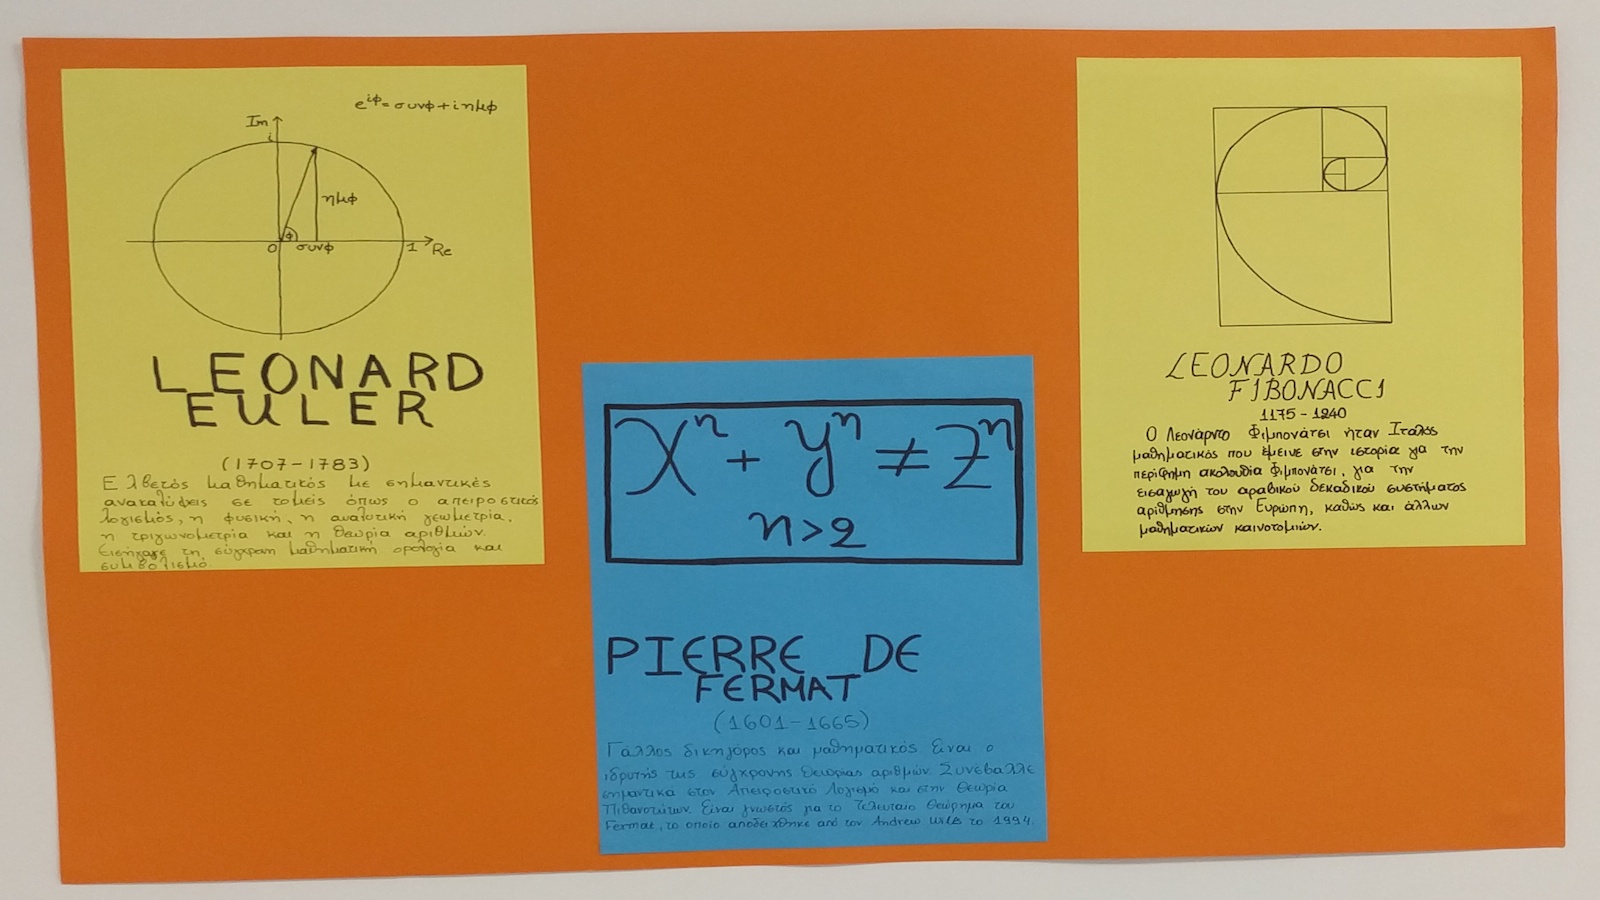 e^{iφ}=συνφ+iημφ
Im
i
ημφ
φ
0 συνφ 1 Re
LEONARD
EULER
(1707-1783)
Ελβετός μαθηματικός με σημαντικές
ανακαλύψεις σε τομείς όπως ο απειροστικός
λογισμός, η φυσική, η αναλυτική γεωμετρία,
η τριγωνομετρία και η θεωρία αριθμών.
Εισήγαγε τη σύγχρονη μαθηματική ορολογία και
συμβολισμό.
X^n + y^n ≠ Z^n
n>2
PIERRE DE
FERMAT
(1601-1665)
Γάλλος δικηγόρος και μαθηματικός είναι ο
ιδρυτής της σύγχρονης θεωρίας αριθμών. Συνέβαλλε
σημαντικά στον Απειροστικό Λογισμό και στην Θεωρία
Πιθανοτήτων. Είναι γνωστός για το Τελευταίο Θεώρημα του
Fermat, το οποίο αποδείχθηκε από τον Andrew Wiles το 1994.
LEONARDO
FIBONACCI
1175-1240
Ο Λεονάρντο Φιμπονάτσι ήταν Ιταλός
μαθηματικός που έμεινε στην ιστορία για την
περίφημη ακολουθία Φιμπονάτσι, για την
εισαγωγή του αραβικού δεκαδικού συστήματος
αρίθμησης στην Ευρώπη, καθώς και άλλων
μαθηματικών καινοτομιών.